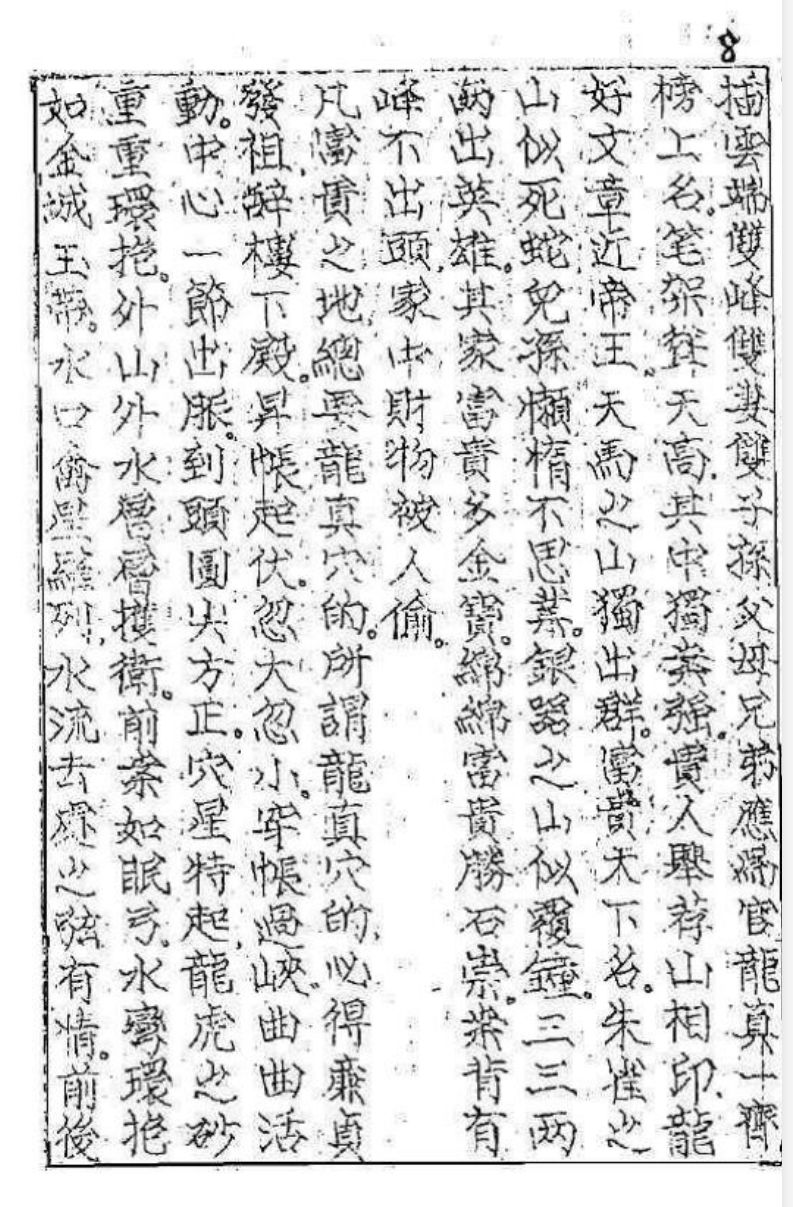 8
插雲端雙峰雙妻雙子孫父母兄弟應為官龍真一齊
榜上名。笔架聳天高其中獨案強。貴人舉荐山相印、龍
好文章近帝王。天馬之山獨出群。富貴天下名。朱雀之
山似死蛇兒孫懶惰不思業。銀器之山似覆鐘。三三两
两出英雄。其家富貴多金寶。綿綿富貴勝石崇。案背有
峰不出頭家中財物被人偷。
凡富貴之地總要龍真穴的。所謂龍真穴的、必得廉貞
發祖辭樓下殿。昇帳起伏。忽大忽小。穿帳過峽。曲曲活
動。中心一節出脈。到頭圓尖方正。穴星特起、龍虎之砂
重重環抱。外山外水層層擁衛。前案如眠弓。水彎環抱
如金城玉帶。水口禽星羅列、水流去處之玄有情。前後